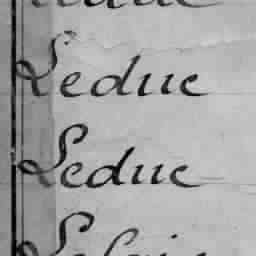 Leduc
Leduc